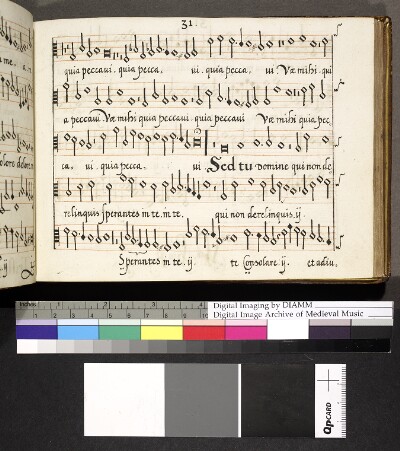 31.
quia peccavi. quia pecca, vi. quia pecca, vi. Væ mihi. qui
a peccavi Væ mihi quia peccavi. quia peccavi Væ mihi quia pec
ca, vi. quia pecca, vi Sed tu Domine qui non de
relinquis sperantes in te. in te, qui non derelinquis. ij.
Sperantes in te. ij. te Consolare ij. et adiu,
me, a.
dolore dolore
ij
inches 1 2 3 4
cm 1 2 3 4 5 6 7 8 9 10
Digital Imaging by DIAMM
Digital Image Archive of Medieval Music
QPCARD